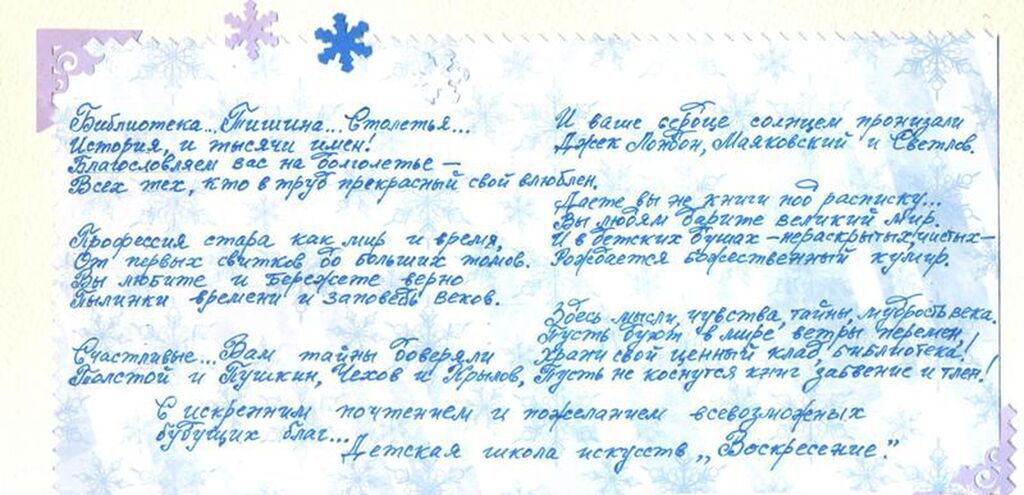 Библиотека... Тишина... Столетья...
История, и тысячи имен!
Благословляем вас на долголетье —
Всех тех, кто в труд прекрасный свой влюблен.
Профессия стара как мир и время,
От первых свитков до больших томов.
Вы любите и бережете верно
Пылинки времени и заповедь веков.
Счастливые... Вам тайны доверяли
Толстой и Пушкин, Чехов и Крылов,
И ваше сердце солнцем пронизали
Джек Лондон, Маяковский и Светлов.
Даете вы не книги под расписку...
Вы людям дарите великий мир.
И в детских душах — нераскрытых, чистых —
Рождается божественный кумир.
Здесь мысли, чувства, тайны, мудрость века.
Пусть дуют в мире ветры перемен,!
Храни свой ценный клад библиотека!
Пусть не коснутся книг забвение и тлен!
С искренним почтением и пожеланием всевозможных
будущих благ...
Детская школа искусств „Воскресение".